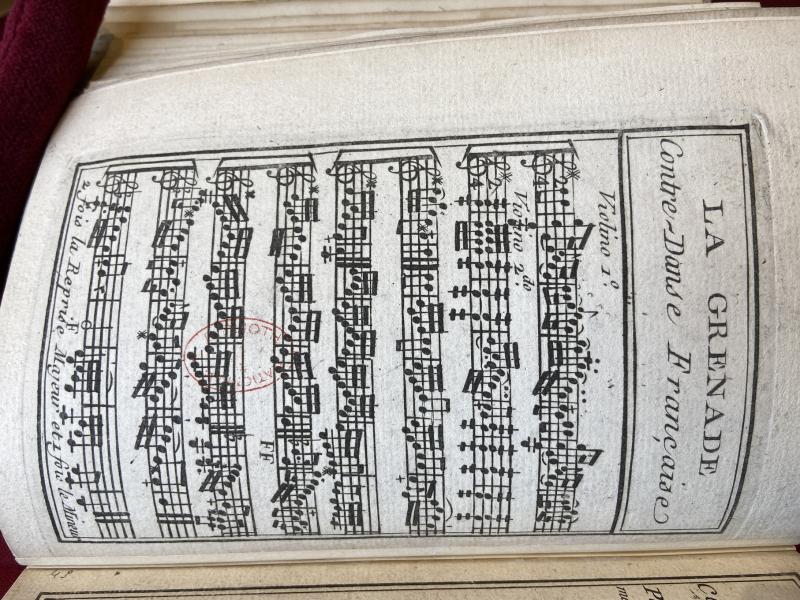 LA GRENADE
Contre-Danse Française
Violino 1º
Violino 2.do
FF
F
2 fois la Reprise Mayeur et 2 fois le Mineur